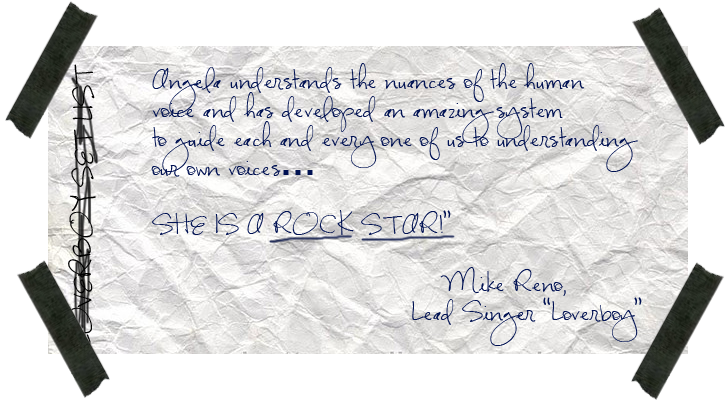 Angela understands the nuances of the human
voice and has developed an amazing system
to guide each and every one of us to understanding
our own voices...
SHE IS A ROCK STAR!"
Mike Reno,
Lead Singer "Loverboy"
LOVERBOY SETLIST